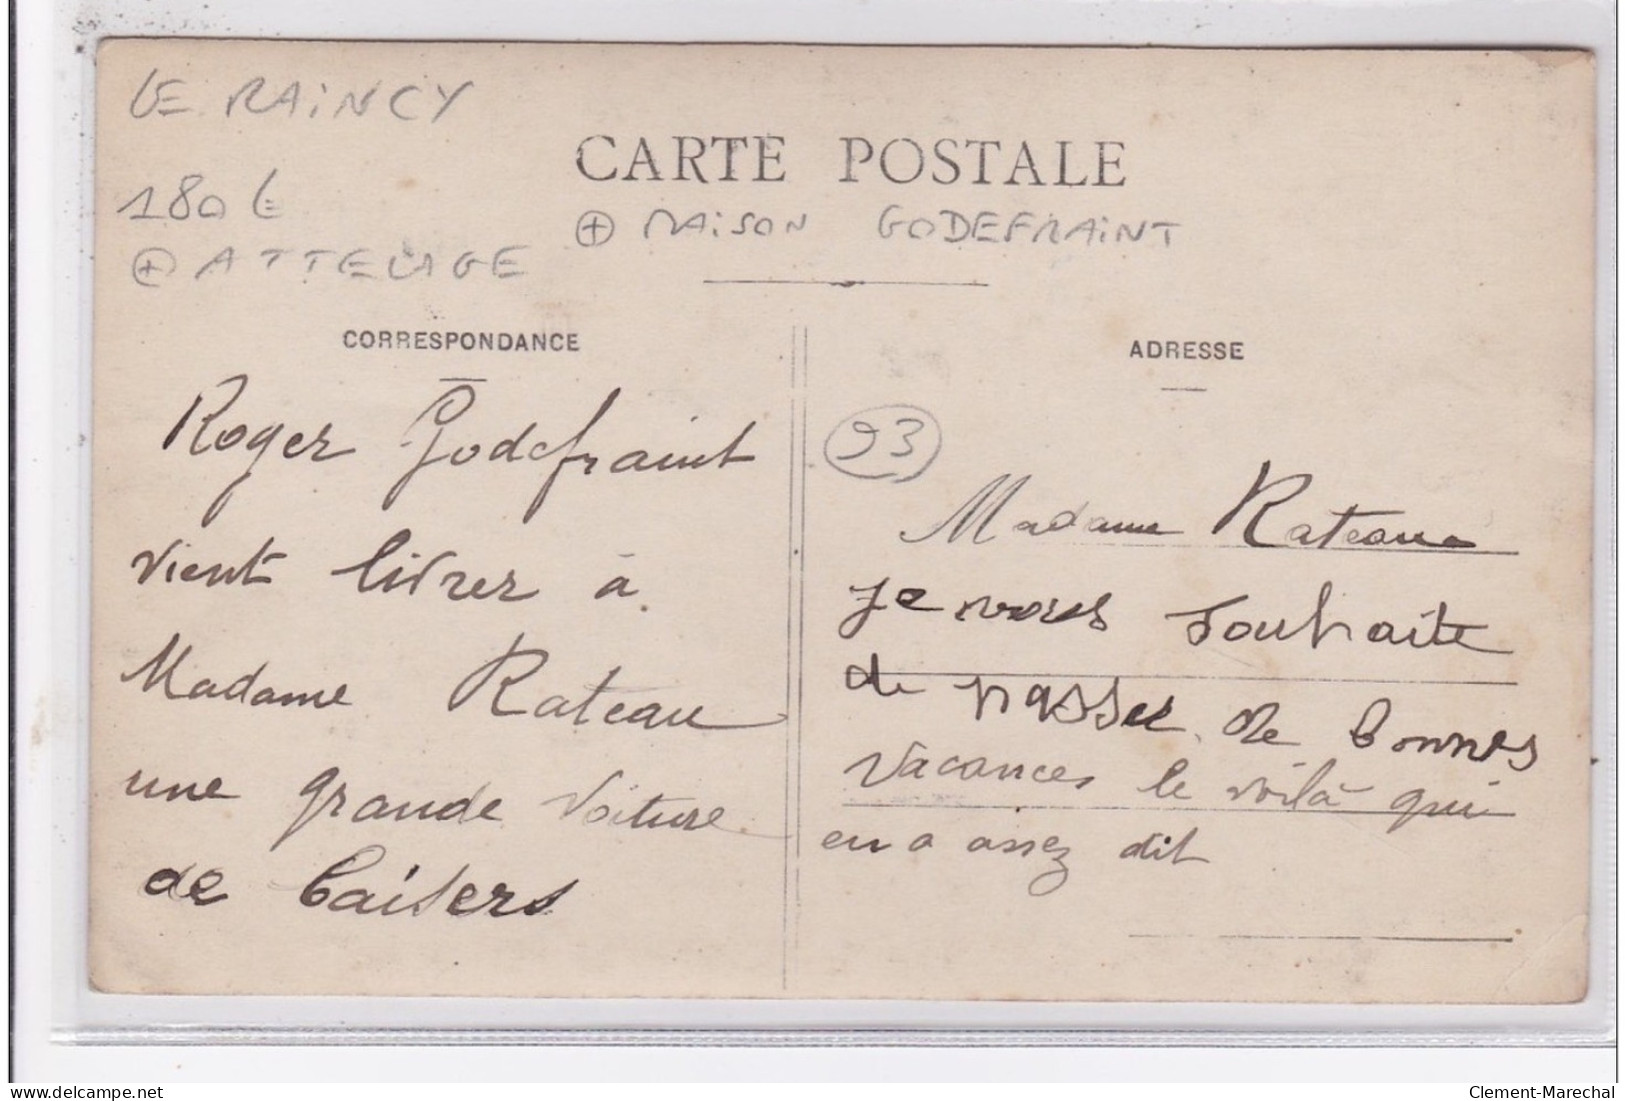 LE RAINCY
CARTE POSTALE
180 €
+ MAISON GODEFRAINT
+ ATTELAGE
CORRESPONDANCE
Roger Godefraint
vient livrer à
Madame Rateau
une grande voiture
de baisers
ADRESSE
93
Madame Rateau
je vous souhaite
de passer de bonnes
vacances le voilà qui
en a assez dit
delcampe.net
Clement-Marechal